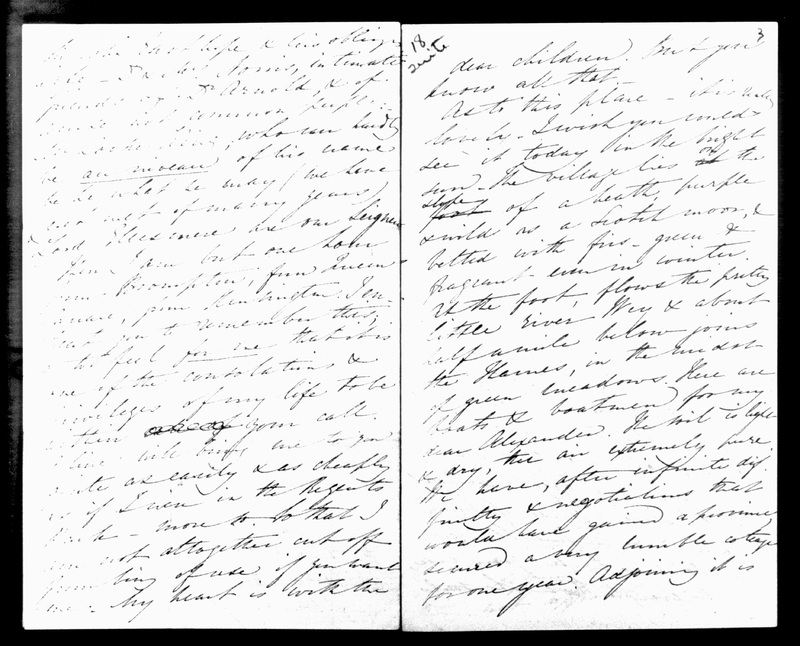 friends of Arnold, & of
who can hardly
be an oiseau of his name
be he what he may (we have
not met of many years)
Lord Ellesmere are our Seigneurs
then I am but one hour
from Brompton, from Queen
Square, from Kensington. I en-
treat you to remember this,
& to feel for me that it is
one of the consolations &
privileges of my life to be
within your call.
will bring me to you
quite as easily & as cheaply
as if I were in the Regents
Park - more so. So that I
am not altogether cut off
from being of use if you want
me - My heart is with the
18
3
dear children. But you
know all that.
As to this place - it is truly
lovely. I wish you could
see it today in the bright
sun - The village lies on the
slope of a heath, purple
& wild as a Scotch moor, &
belted with firs - green &
fragrant - even in winter.
At the foot, flows the pretty
little river Wey & about
half a mile below joins
the Thames, in the midst
of green meadows. Here are
boats & boatmen for my
dear Alexander. The soil is light
& dry, the air extremely pure
We have, after infinite dif-
ficulty & negotiations that
would have gained a province
secured a very humble cottage
for one year. Adjoining it is